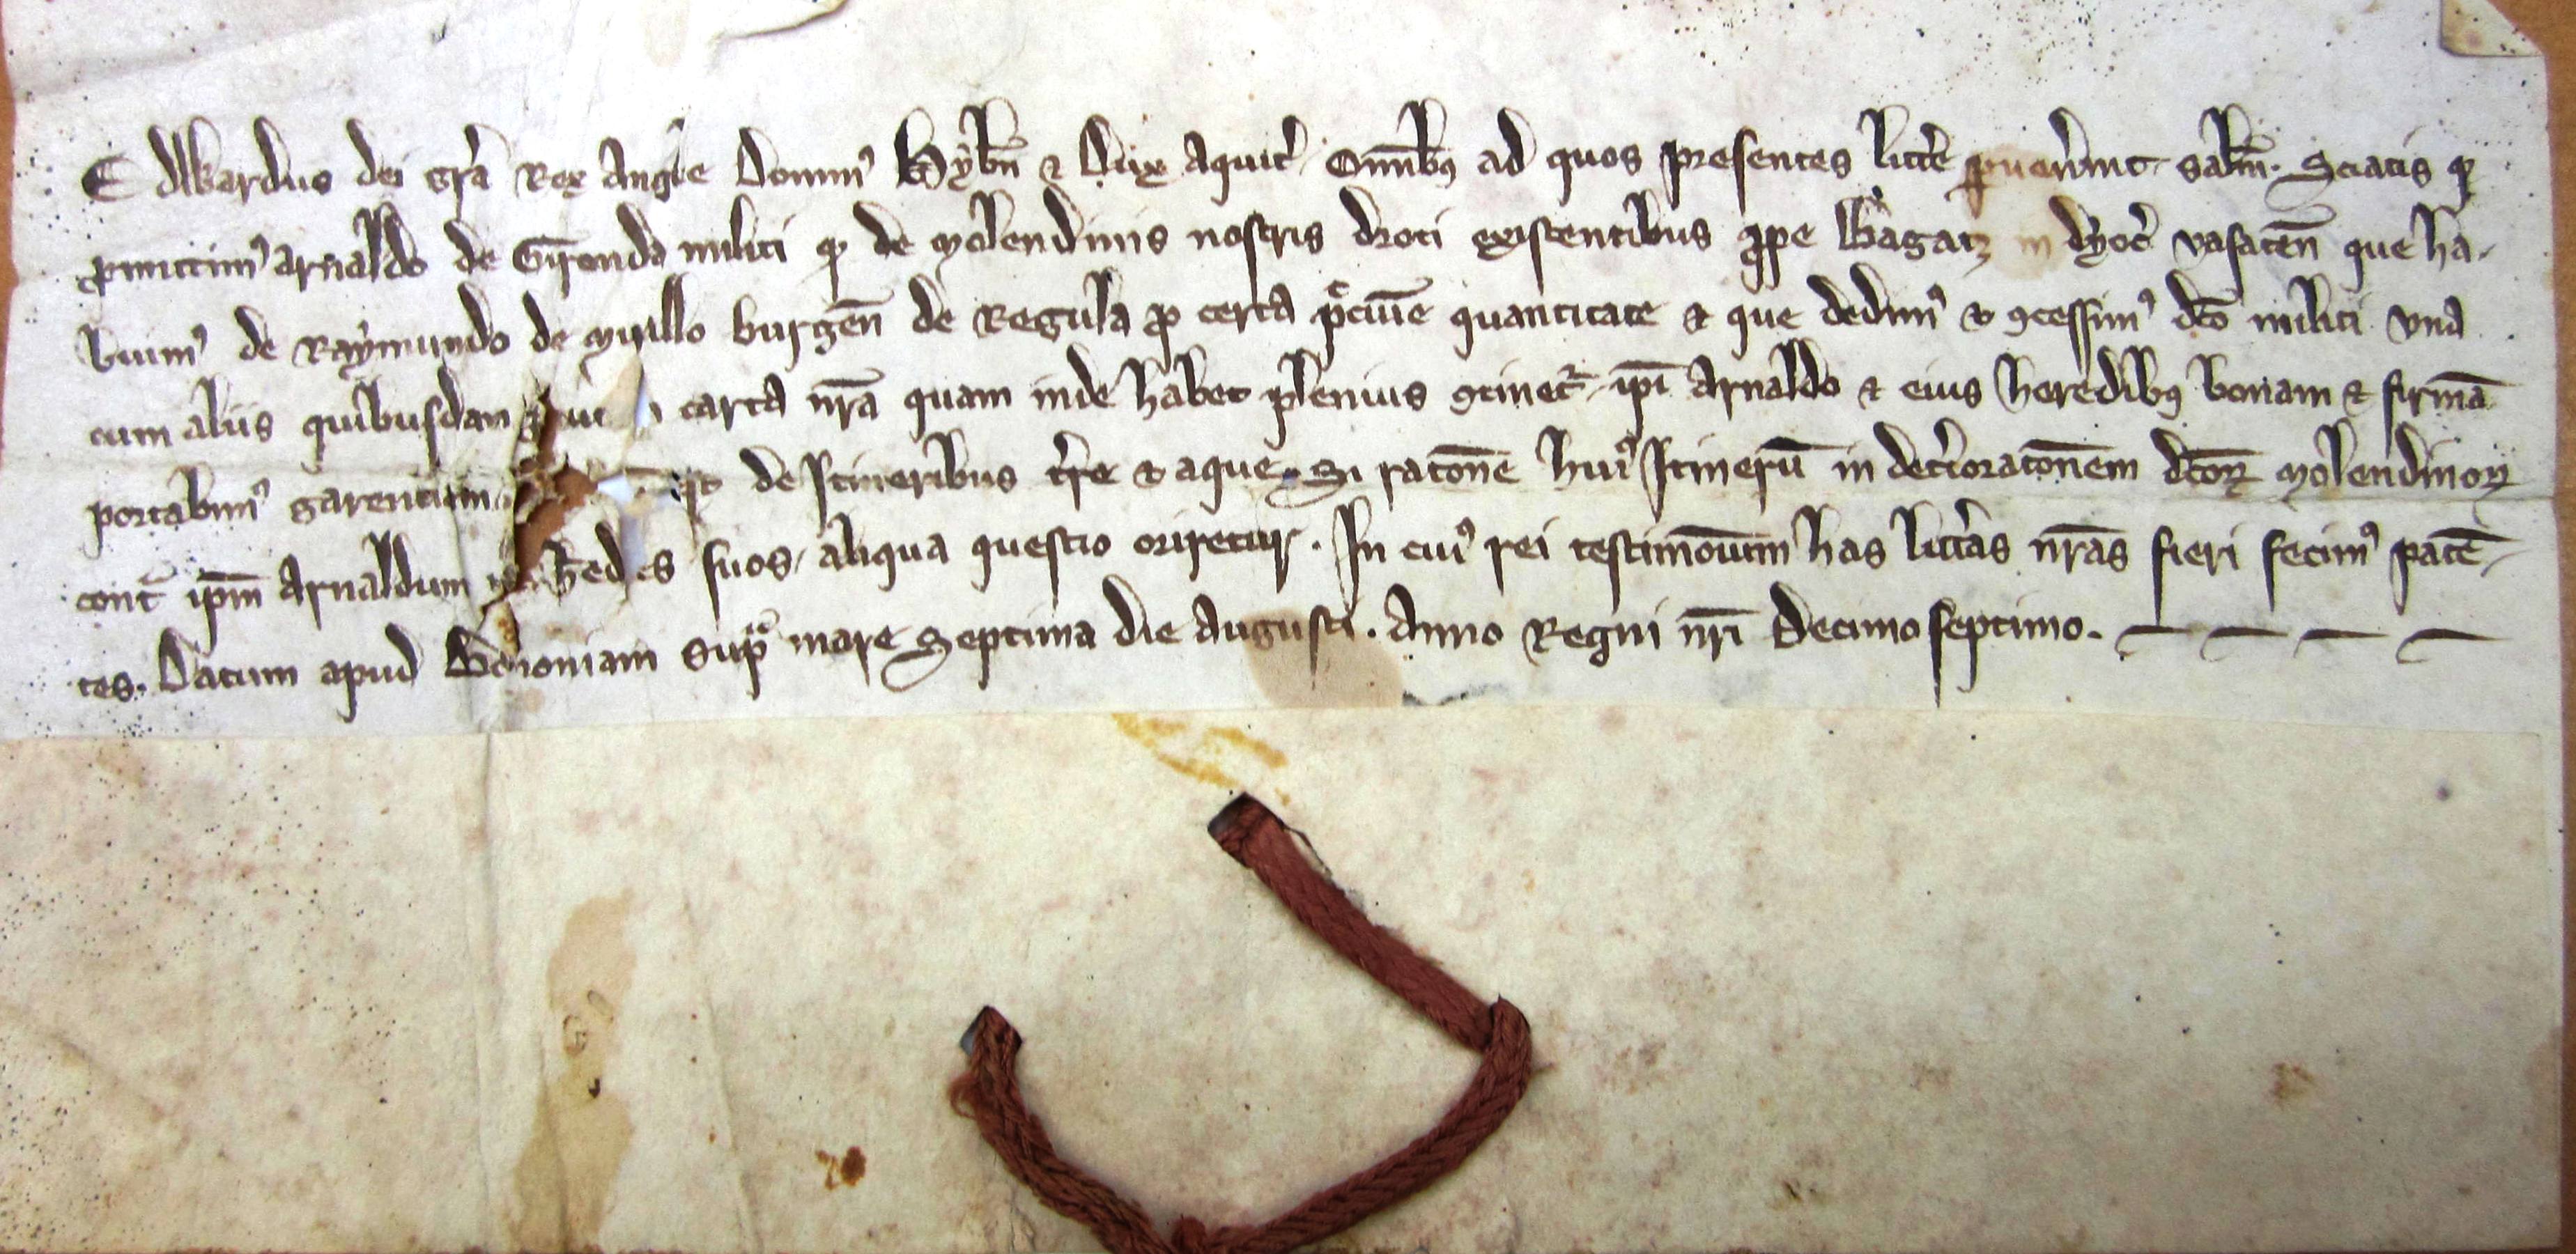 Edwardus dei gr̄a Rex Angl̄ie Domin⁹ Hyb̄n ⁊ Dux Aquit̄ . Om̄ib⁹ ad quos presentes litt̄e ꝑuen̄int . sal̄m . Sciatis ꝙ
ꝓmittim⁹ arnaldo de Gironda militi ꝙ de molendinis nostris droti existentibus ꝓpe Bagatz in dyoc̄ vasaten̄ que ha-
buim⁹ de Raymundo de myrllo burgen̄ de Regula ꝓ certa pͨcuīe quantitate ⁊ que dedim⁹ ⁊ ꝯcessim⁹ dc̄o militi vna
cum aliis quibusdam carta nr̄a quam inde habet plenius ꝯtinet᷑ . ip̄i Arnaldo ⁊ eius heredib⁹ bonam ⁊ firmā
portabim⁹ garentiam de Itineribus t̄re ⁊ aque . Si rac̄one hui⁹ Itinerū in det̄ioraconem dc̄oꝝ molendinoꝝ
cont̄ ip̄m Arnaldum suos . aliqua questio oriretur . In cui⁹ rei testimōium has litt̄as nr̄as fieri fecim⁹ patē-
tes . Datum apud Bononiam supͣ mare Septima die Augusti . Anno Regni nr̄i Decimo septimo .